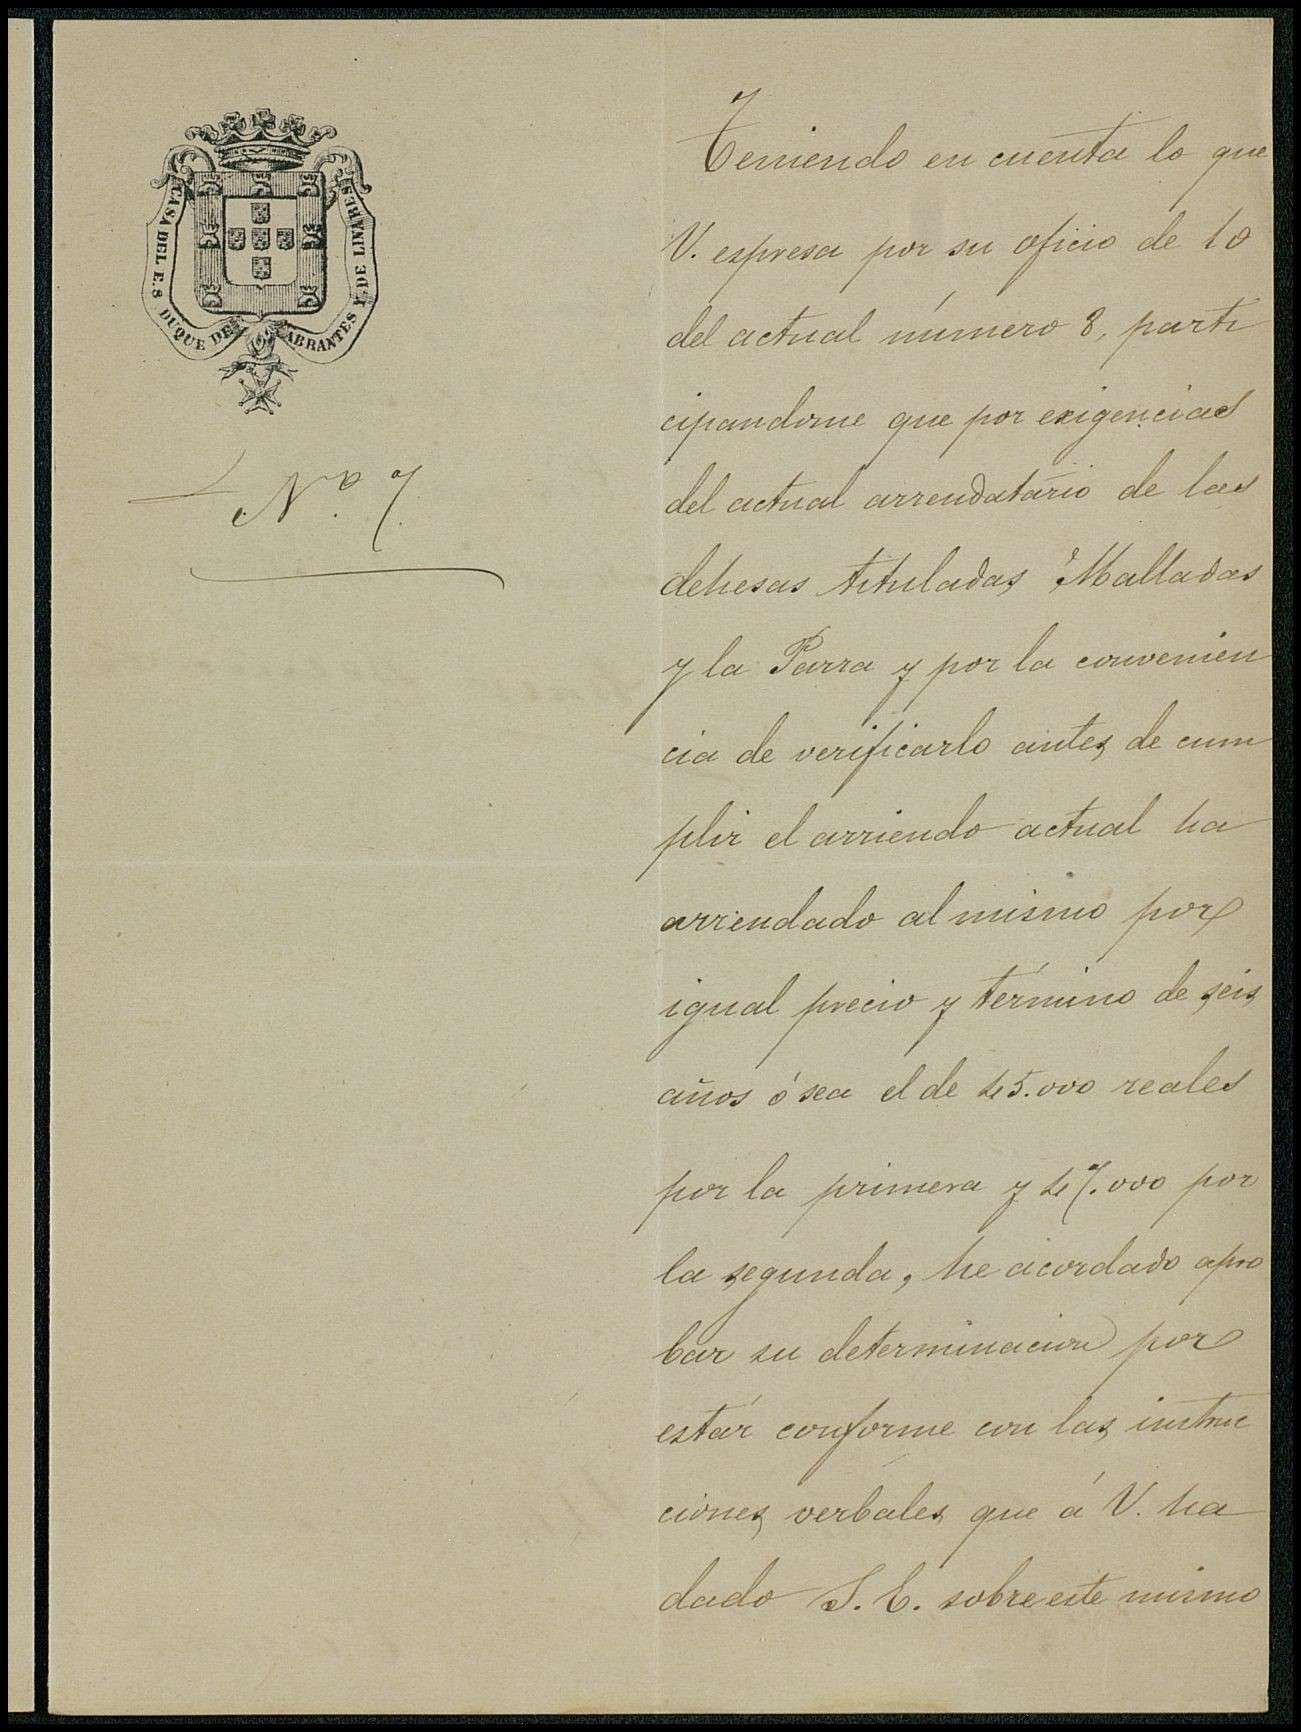 CASA DEL E. S. DUQUE DE ABRANTES Y DE LINARES
N.º 7.
Teniendo en cuenta lo que
V. espresa por su oficio de 10
del actual número 8, parti
cipandome que por exigencias
del actual arrendatario de las
dehesas tituladas Malladas
y la Parra y por la convenien
cia de verificarlo antes de cum
plir el arriendo actual ha
arrendado al mismo por
igual precio y término de seis
años ó sea el de 45.000 reales
por la primera y 47.000 por
la segunda, he acordado apro
bar su determinacion por
estár conforme con las instruc
ciones verbales que á V. ha
dado S. E. sobre este mismo